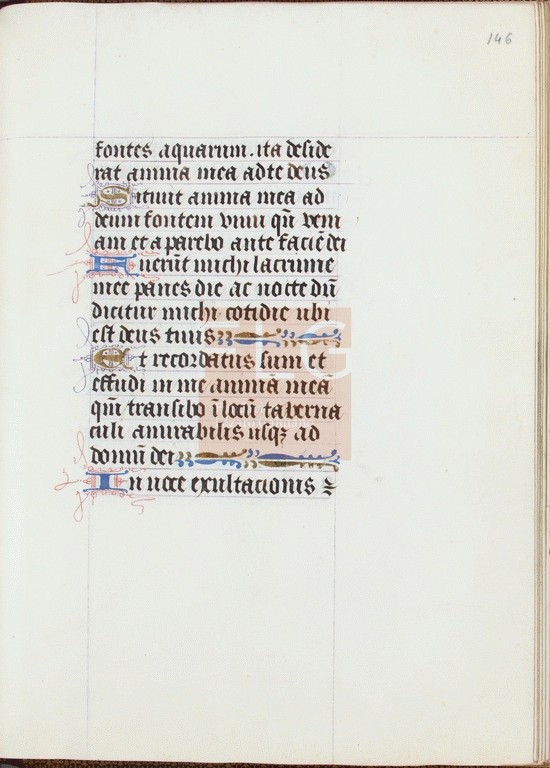 146
fontes aquarum. ita deside
rat anima mea ad te deus
Sitiuit anima mea ad
deum fontem viuū qn̄ veni
am et aparebo ante faciē dei
Fuerūt michi lacrime
mee panes die ac nocte dū
dicitur michi cotidie ubi
est deus tuus
Et recordatus sum et
effudi in me animā meā
qm̄ transibo ī locū taberna
culi amirabilis usqꝫ ad
domū dei
In uoce exultacionis
FLG